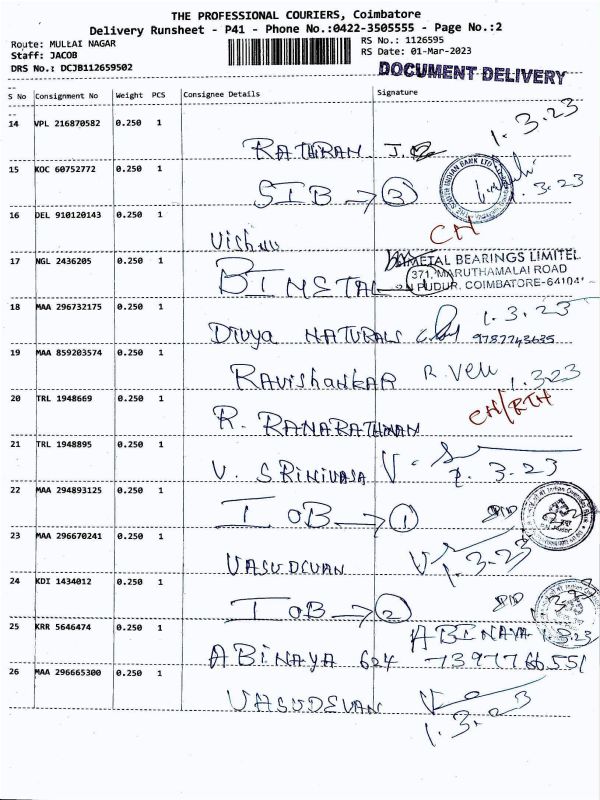 THE PROFESSIONAL COURIERS, Coimbatore
Delivery Runsheet - P41 - Phone No.:0422-3505555 - Page No.:2
Route: MULLAI NAGAR
RS No.: 1126595
Staff: JACOB
RS Date: 01-Mar-2023
DRS No.: DCJB112659502
DOCUMENT DELIVERY
S No Consignment No Weight PCS Consignee Details Signature
14 VPL 216870582 0.250 1
1.3.23
RATHIRAM
15 KOC 60752772 0.250 1
SIB → 3 1.3.23
16 DEL 910120143 0.250 1
CH
17 NGL 2436205 0.250 1
BIMETAL BEARINGS LIMITED
371, MARUTHAMALAI ROAD
PUDUR, COIMBATORE-64104
BIMETAL
18 MAA 296732175 0.250 1
1.3.23
Divya NATURALS 9787743635
19 MAA 859203574 0.250 1
Ravishankar R. Veli 1.3.23
20 TRL 1948669 0.250 1
CH/RTH
R. RANARATHINAM
21 TRL 1948895 0.250 1
V. SRINIVASA 1.3.23
22 MAA 294893125 0.250 1
IOB → 1
23 MAA 296670241 0.250 1
VASUDEVAN 1.3.23
24 KDI 1434012 0.250 1
IOB → 2
25 KRR 5646474 0.250 1
ABINAYA 1.3.23
ABINAYA 624 7397766551
26 MAA 296665300 0.250 1
VASUDEVAN
1.3.23